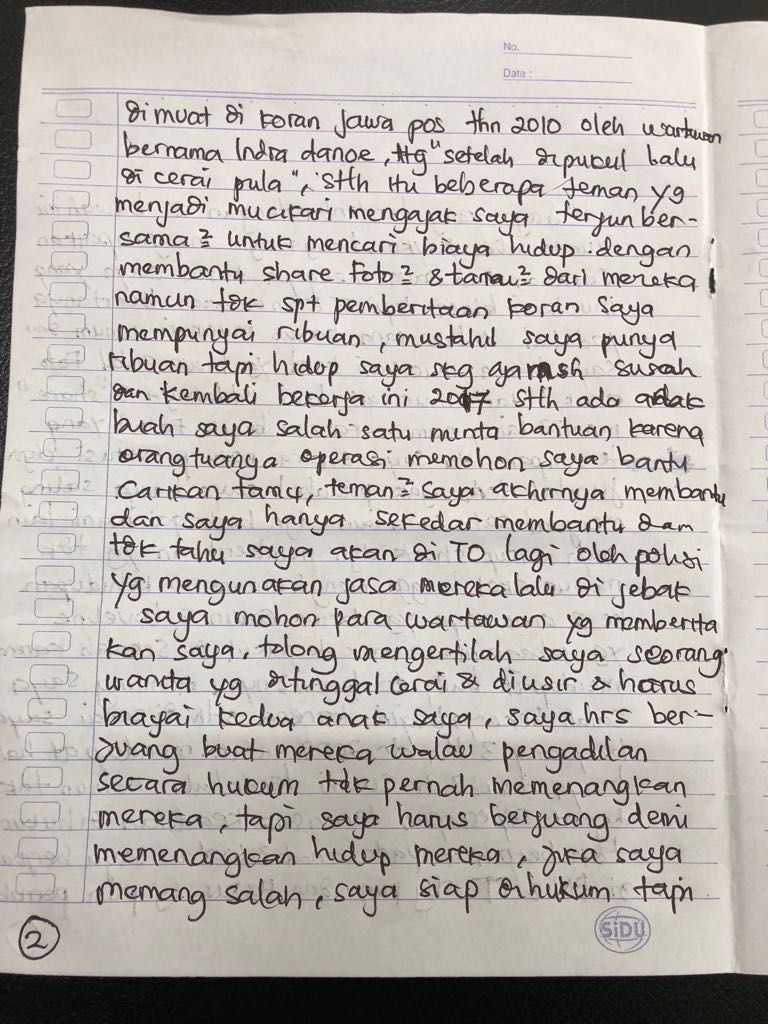 No.
Date :
dimuat di koran Jawa pos thn 2010 oleh wartawan
bernama Indra danoe, ttg "setelah dipukul lalu
di cerai pula", stlh itu beberapa teman yg
menjadi mucikari mengajak saya terjun ber-
sama² untuk mencari biaya hidup dengan
membantu share foto² & tamu² dari mereka
namun tdk spt pemberitaan koran saya
mempunyai ribuan, mustahil saya punya
ribuan tapi hidup saya skg aja msh susah
dan kembali bekerja ini 2017 stlh ada anak
buah saya salah satu minta bantuan karena
orangtuanya operasi memohon saya bantu
carikan tamu, teman² saya akhirnya membantu
dan saya hanya sekedar membantu dan
tdk tahu saya akan di TO lagi oleh polisi
yg mengunakan jasa mereka lalu di jebak
saya mohon para wartawan yg memberita
kan saya, tolong mengertilah saya seorang
wanita yg ditinggal cerai & diusir & harus
biayai kedua anak saya, saya hrs ber-
juang buat mereka walau pengadilan
secara hukum tdk pernah memenangkan
mereka, tapi saya harus berjuang demi
memenangkan hidup mereka, jika saya
memang salah, saya siap dihukum tapi
2
SiDU